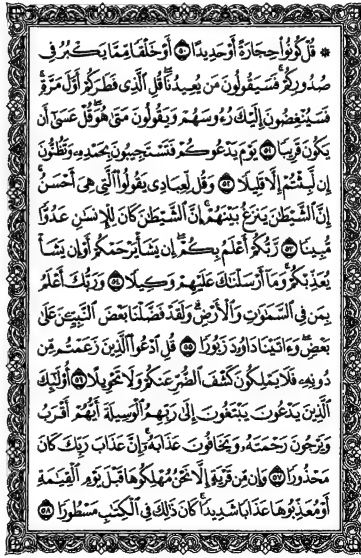 ۞ قُلْ كُونُوا۟ حِجَارَةً أَوْ حَدِيدًا ﴿٥٠﴾ أَوْ خَلْقًا مِّمَّا يَكْبُرُ فِى
صُدُورِكُمْ ۚ فَسَيَقُولُونَ مَن يُعِيدُنَا ۖ قُلِ ٱلَّذِى فَطَرَكُمْ أَوَّلَ مَرَّةٍ ۚ
فَسَيُنْغِضُونَ إِلَيْكَ رُءُوسَهُمْ وَيَقُولُونَ مَتَىٰ هُوَ ۖ قُلْ عَسَىٰٓ أَن
يَكُونَ قَرِيبًا ﴿٥١﴾ يَوْمَ يَدْعُوكُمْ فَتَسْتَجِيبُونَ بِحَمْدِهِۦ وَتَظُنُّونَ
إِن لَّبِثْتُمْ إِلَّا قَلِيلًا ﴿٥٢﴾ وَقُل لِّعِبَادِى يَقُولُوا۟ ٱلَّتِى هِىَ أَحْسَنُ ۚ
إِنَّ ٱلشَّيْطَٰنَ يَنزَغُ بَيْنَهُمْ ۚ إِنَّ ٱلشَّيْطَٰنَ كَانَ لِلْإِنسَٰنِ عَدُوًّا
مُّبِينًا ﴿٥٣﴾ رَّبُّكُمْ أَعْلَمُ بِكُمْ ۖ إِن يَشَأْ يَرْحَمْكُمْ أَوْ إِن يَشَأْ
يُعَذِّبْكُمْ ۚ وَمَآ أَرْسَلْنَٰكَ عَلَيْهِمْ وَكِيلًا ﴿٥٤﴾ وَرَبُّكَ أَعْلَمُ
بِمَن فِى ٱلسَّمَٰوَٰتِ وَٱلْأَرْضِ ۗ وَلَقَدْ فَضَّلْنَا بَعْضَ ٱلنَّبِيِّۦنَ عَلَىٰ
بَعْضٍ ۖ وَءَاتَيْنَا دَاوُۥدَ زَبُورًا ﴿٥٥﴾ قُلِ ٱدْعُوا۟ ٱلَّذِينَ زَعَمْتُم مِّن
دُونِهِۦ فَلَا يَمْلِكُونَ كَشْفَ ٱلضُّرِّ عَنكُمْ وَلَا تَحْوِيلًا ﴿٥٦﴾ أُو۟لَٰٓئِكَ
ٱلَّذِينَ يَدْعُونَ يَبْتَغُونَ إِلَىٰ رَبِّهِمُ ٱلْوَسِيلَةَ أَيُّهُمْ أَقْرَبُ
وَيَرْجُونَ رَحْمَتَهُۥ وَيَخَافُونَ عَذَابَهُۥٓ ۚ إِنَّ عَذَابَ رَبِّكَ كَانَ
مَحْذُورًا ﴿٥٧﴾ وَإِن مِّن قَرْيَةٍ إِلَّا نَحْنُ مُهْلِكُوهَا قَبْلَ يَوْمِ ٱلْقِيَٰمَةِ
أَوْ مُعَذِّبُوهَا عَذَابًا شَدِيدًا ۚ كَانَ ذَٰلِكَ فِى ٱلْكِتَٰبِ مَسْطُورًا ﴿٥٨﴾